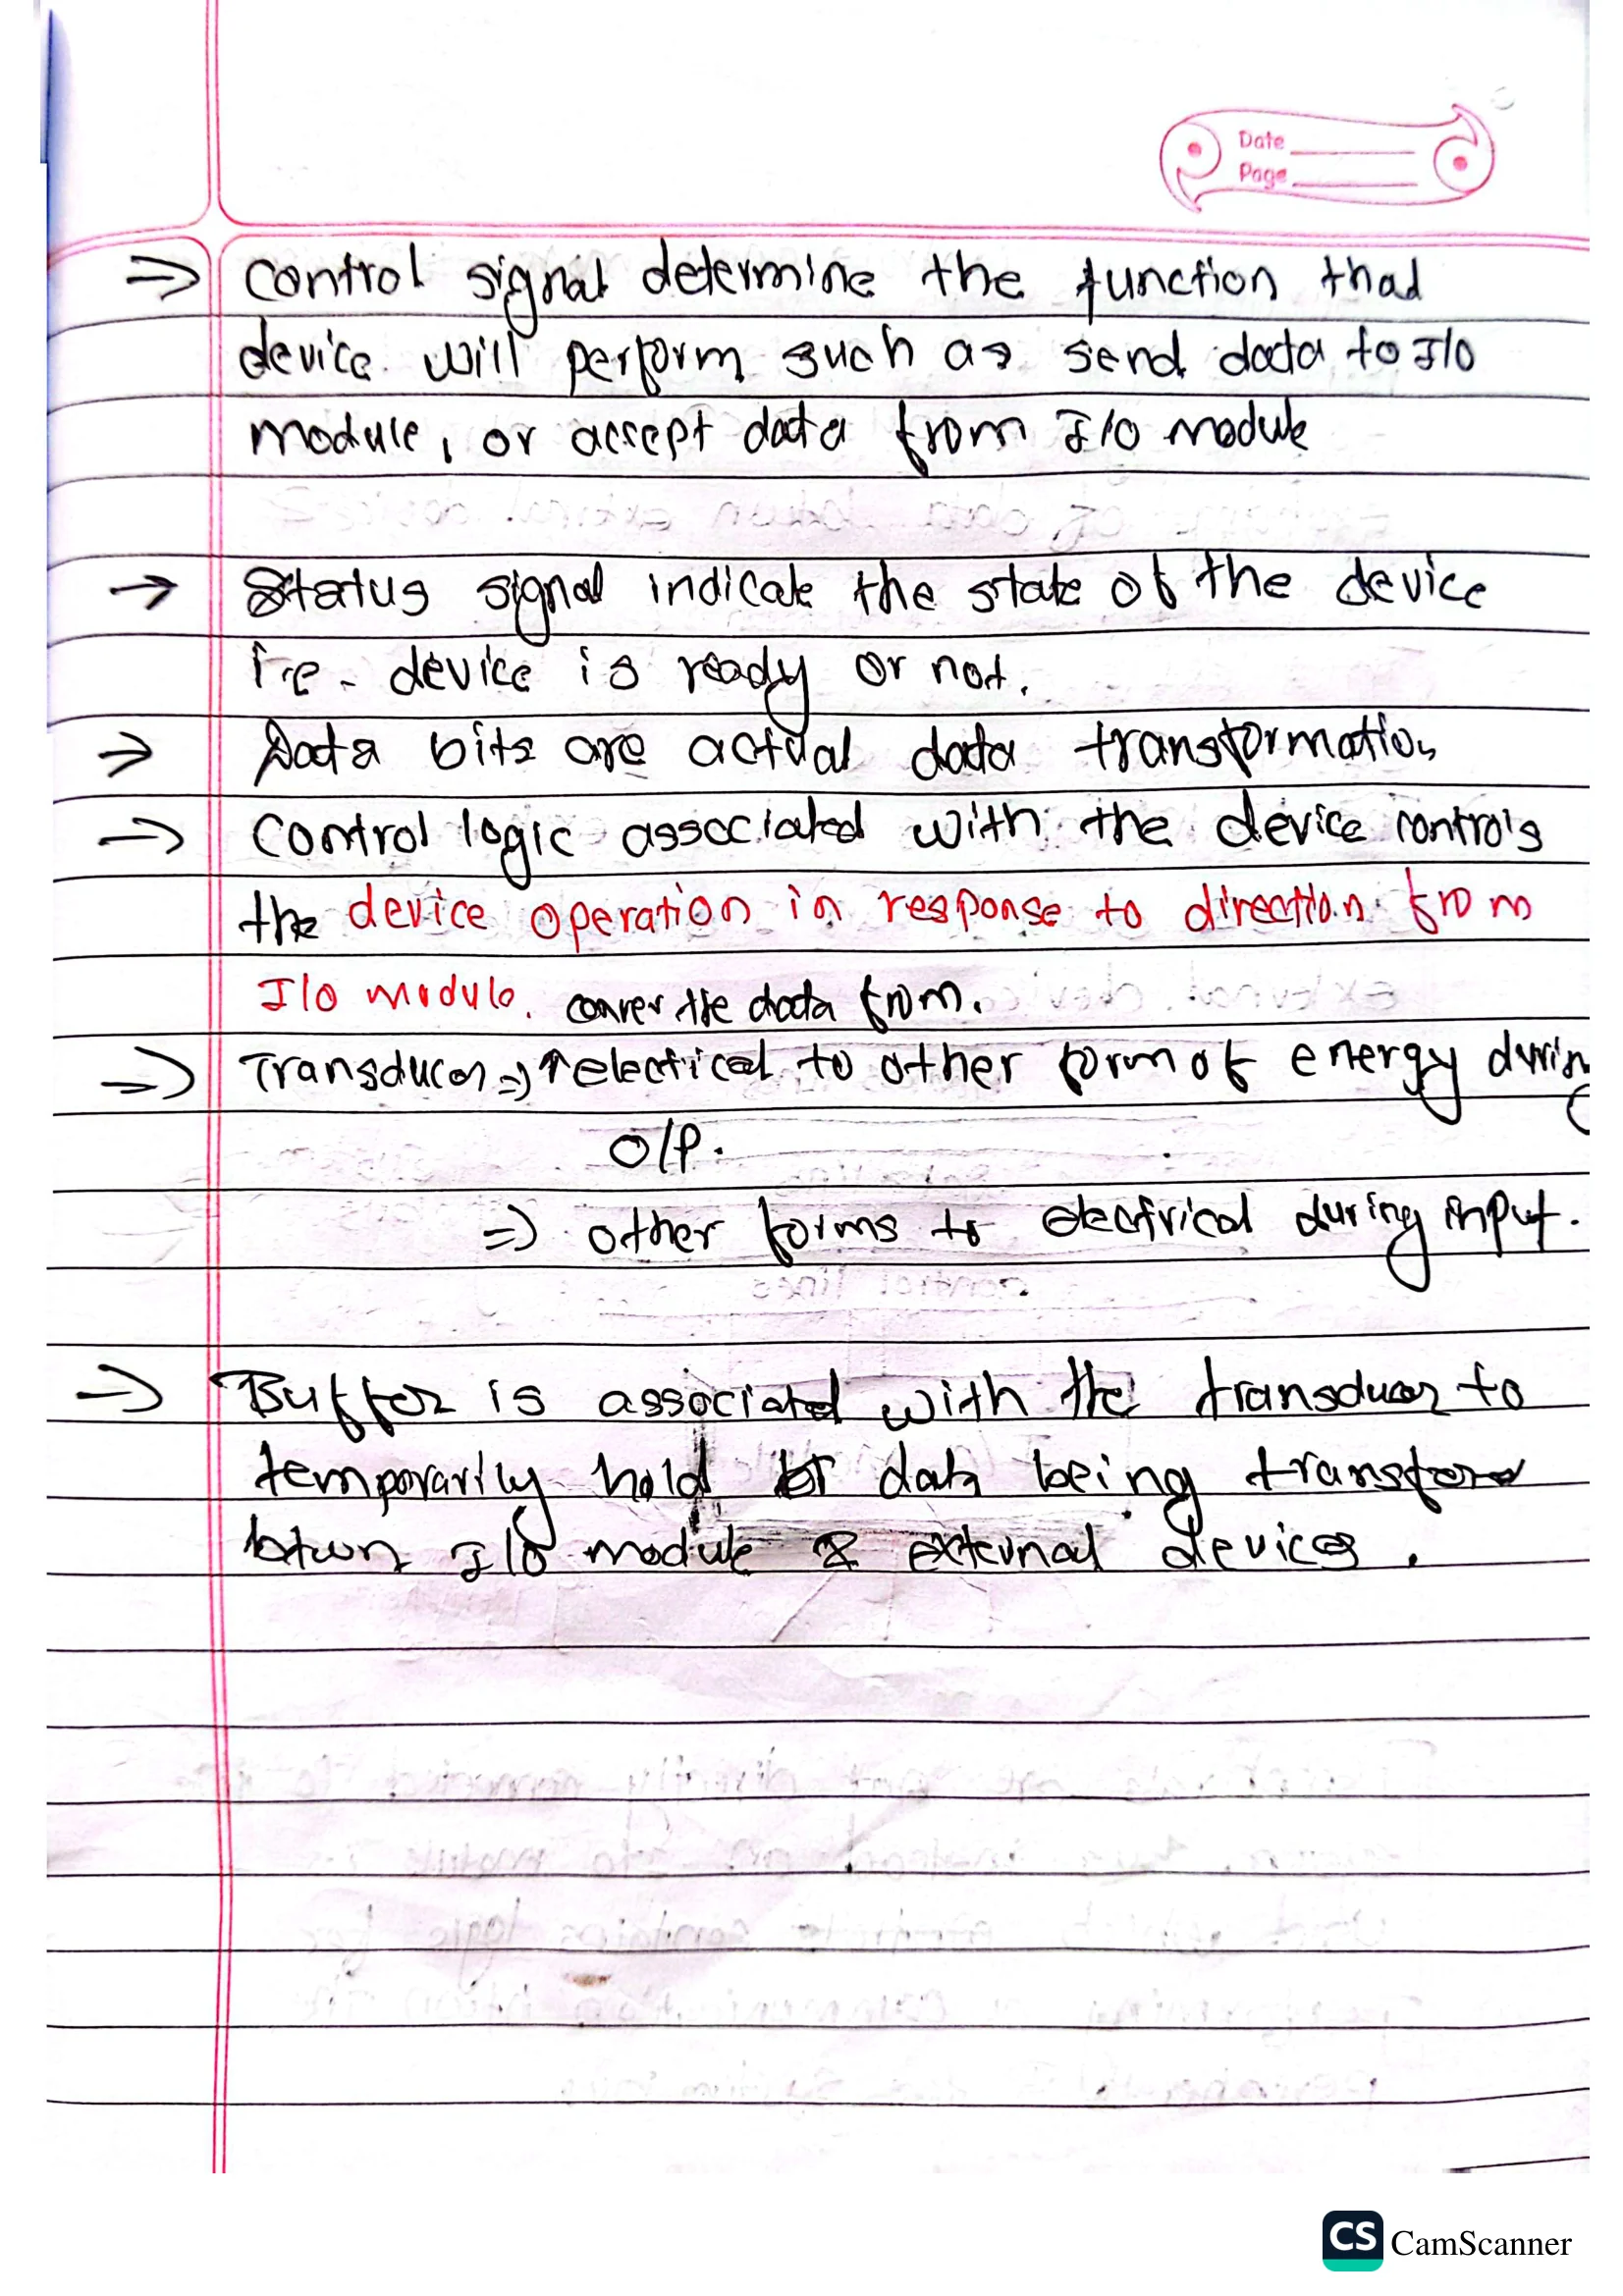 Date
Page
=> Control signal determine the function that
device will perform such as send data to I/O
module, or accept data from I/O module
→ Status signal indicate the state of the device
i.e. device is ready or not.
→ Data bits are actual data transformation
→ Control logic associated with the device controls
the device operation in response to direction from
I/O module. conver the data from.
=> Transducer => ↑ electrical to other form of energy during
O/P.
=> other forms to electrical during input.
=> Buffer is associated with the transducer to
temporarily hold data being transfer
btwn I/O module & external devices.
CS CamScanner